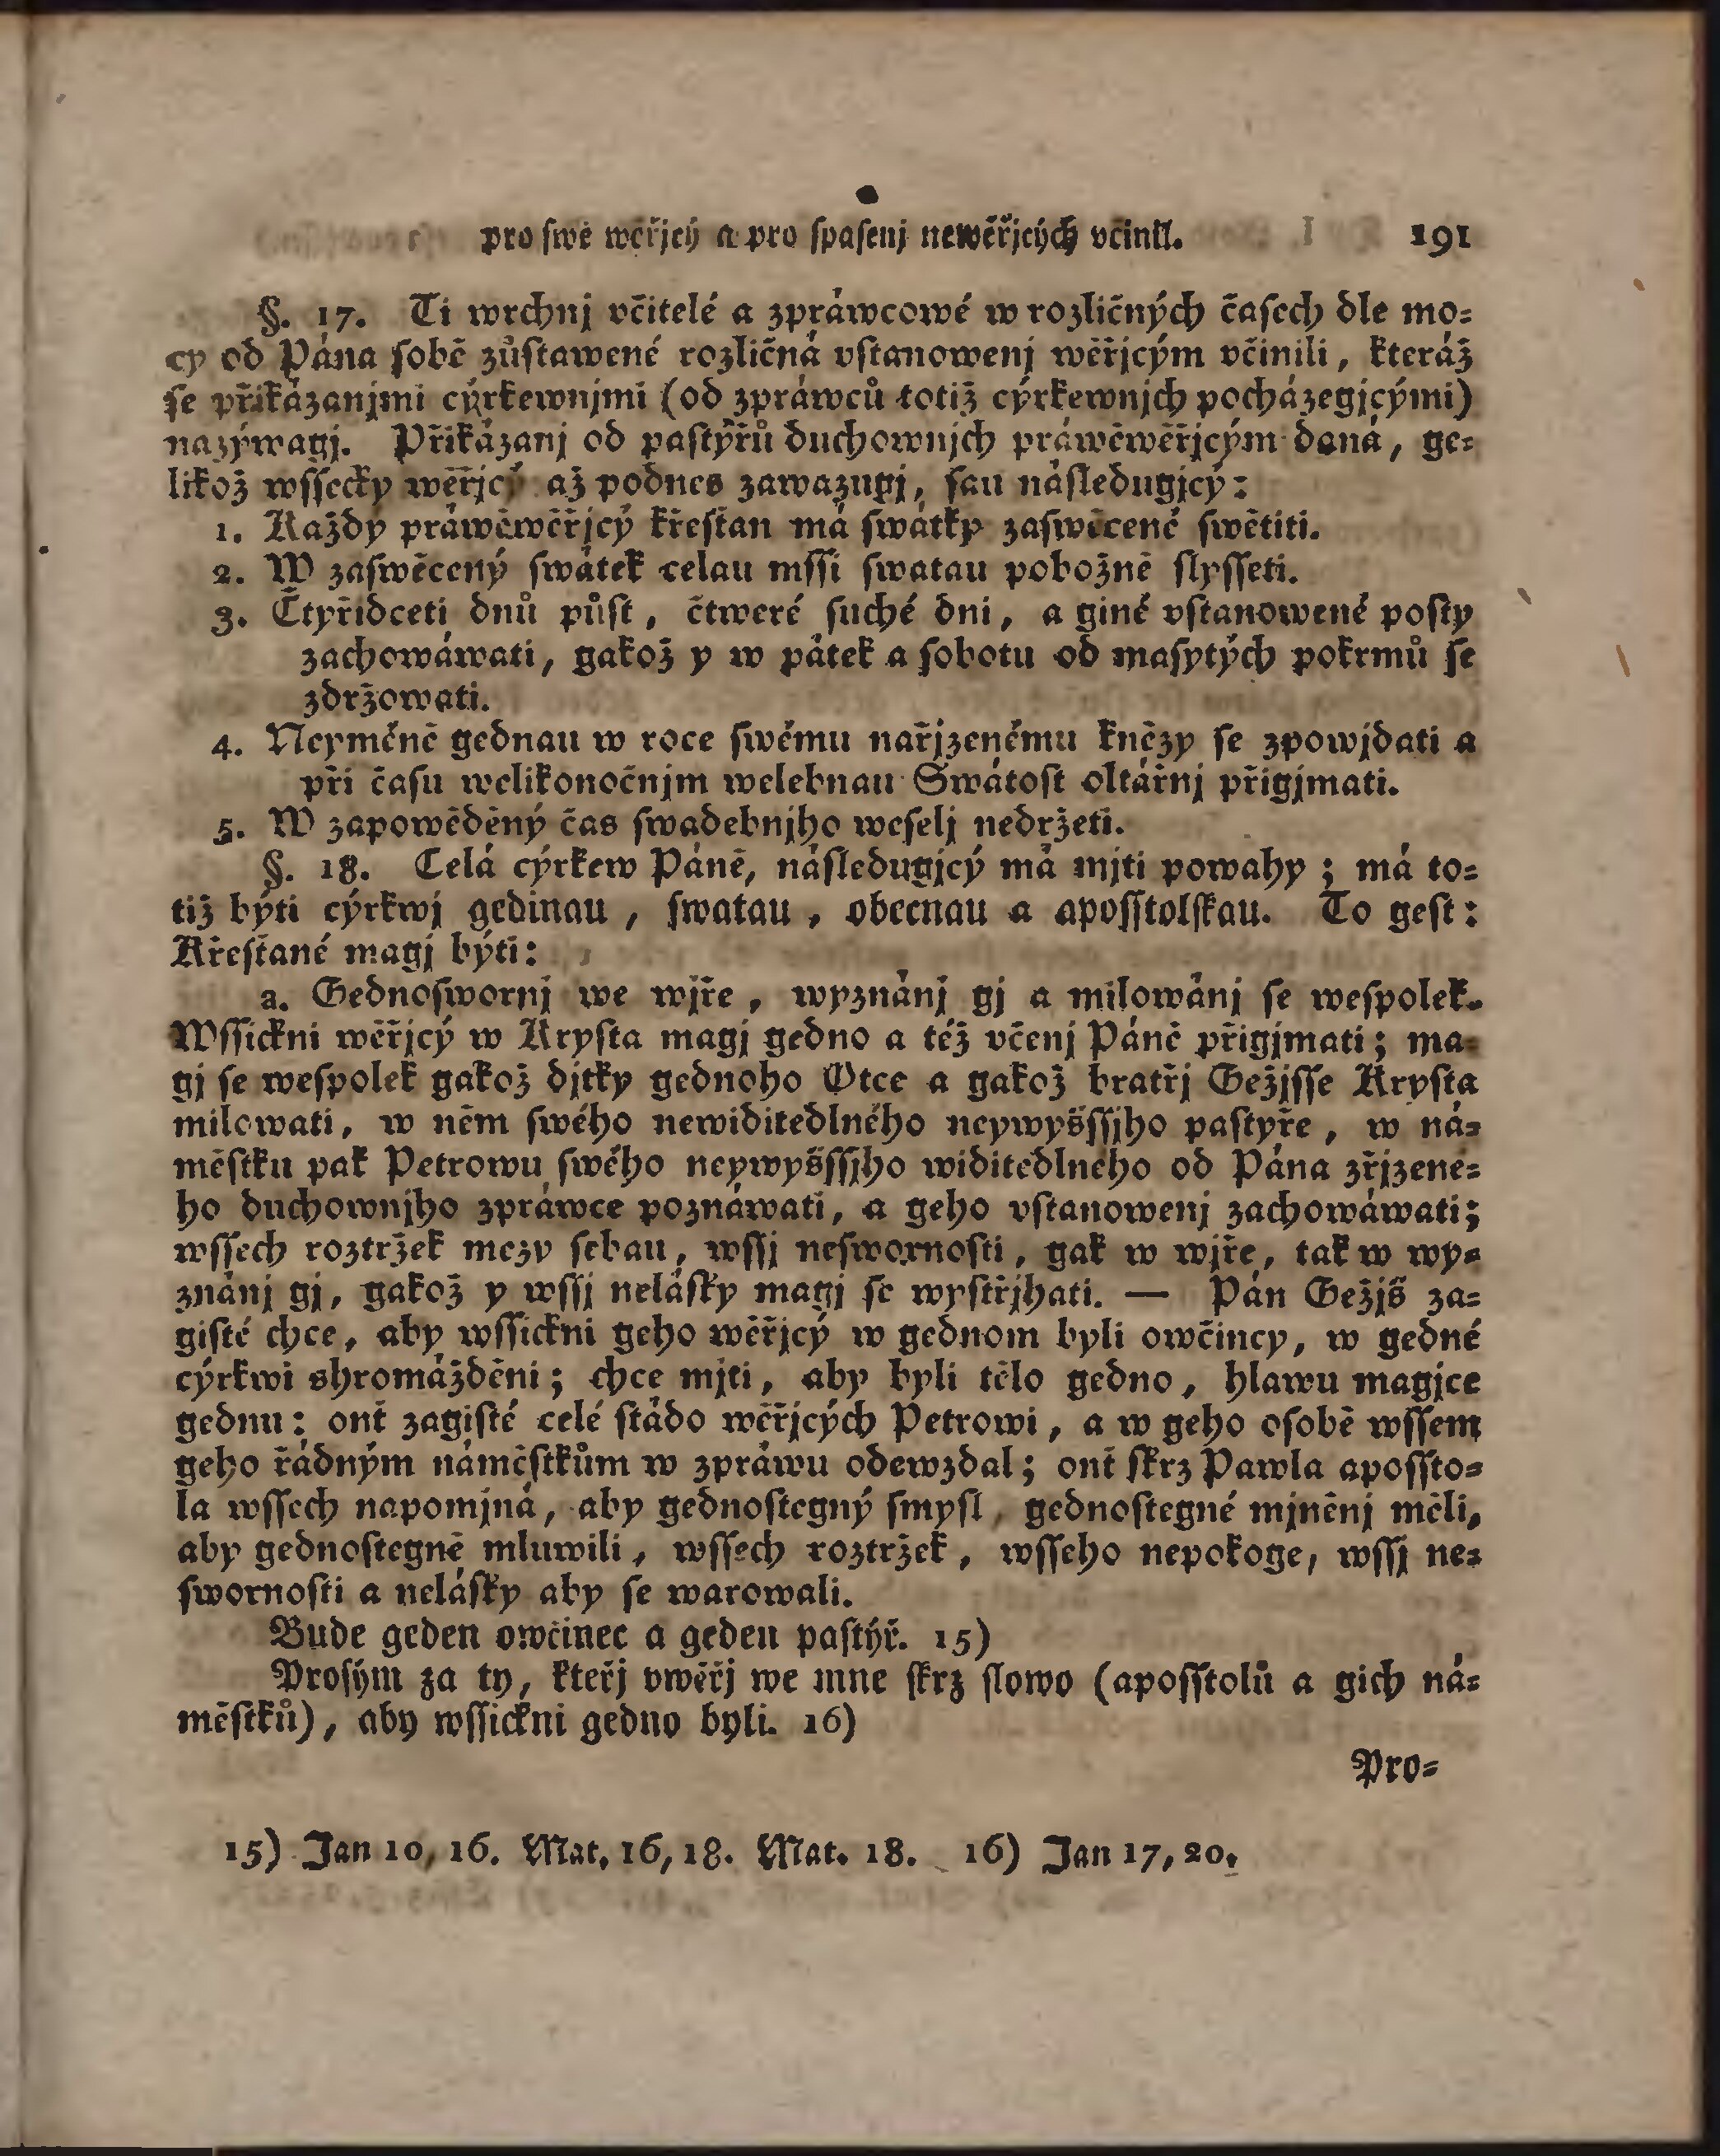 pro swé wěřjcý a pro spasenj newěřjcých včinil. 191
§. 17. Ti wrchnj včitelé a zpráwcowé w rozličných časech dle mo-
cy od Pána sobě zůstawené rozličná vstanowenj wěřjcým včinili, kteráž
se přikázanjmi cýrkewnjmi (od zpráwců totiž cýrkewnjch pocházegjcými)
nazýwagj. Přikázanj od pastýřů duchownjch práwěwěřjcým daná, ge-
likož wssecky wěřjcý až podnes zawazugj, sau následugjcý:
1. Každý práwěwěřjcý křesťan má swátky zaswěcené swětiti.
2. W zaswěcený swátek celau mssi swatau pobožně slysseti.
3. Čtyřidceti dnů půst, čtweré suché dni, a giné vstanowené posty
zachowáwati, gakož y w pátek a sobotu od masytých pokrmů se
zdržowati.
4. Neyméně gednau w roce swému nařjzenému knězy se zpowjdati a
při času welikonočnjm welebnau Swátost oltářnj přigjmati.
5. W zapowěděný čas swadebnjho weselj nedržeti.
§. 18. Celá cýrkew Páně, následugjcý má mjti powahy; má to-
tiž býti cýrkwj gedinau, swatau, obecnau a aposstolskau. To gest:
Křesťané magj býti:
a. Gednoswornj we wjře, wyznánj gj a milowánj se wespolek.
Wssickni wěřjcý w Krysta magj gedno a též včenj Páně přigjmati; ma-
gj se wespolek gakož djtky gednoho Otce a gakož bratřj Gežjsse Krysta
milowati, w něm swého newiditedlného neywyšssjho pastyře, w ná-
městku pak Petrowu swého neywyšssjho widitedlného od Pána zřjzené-
ho duchownjho zpráwce poznáwati, a geho vstanowenj zachowáwati;
wssech roztržek mezy sebau, wssj neswornosti, gak w wjře, tak w wy-
znánj gj, gakož y wssj nelásky magj se wystřjhati. — Pán Gežjš za-
gisté chce, aby wssickni geho wěřjcý w gednom byli owčincy, w gedné
cýrkwi shromážděni; chce mjti, aby byli tělo gedno, hlawu magjce
gednu: onť zagisté celé stádo wěřjcých Petrowi, a w geho osobě wssem
geho řádným náměstkům w zpráwu odewzdal; onť skrz Pawla apossto-
la wssech napomjná, aby gednostegný smysl, gednostegné mjněnj měli,
aby gednostegně mluwili, wssech roztržek, wsseho nepokoge, wssj ne-
swornosti a nelásky aby se warowali.
Bude geden owčinec a geden pastýř. 15)
Prosým za ty, kteřj vwěřj we mne skrz slowo (aposstolů a gich ná-
městků), aby wssickni gedno byli. 16)
Pro-
15) Jan 10, 16. Mat. 16, 18. Mat. 18. 16) Jan 17, 20.